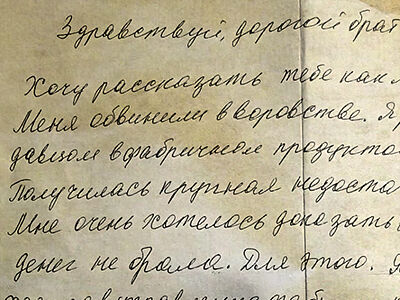 Здравствуй, дорогой брат
Хочу рассказать тебе как
Меня обвинили в воровстве. Я
давцом в фабричном продукто
Получилась крупная недоста
Мне очень хотелось доказать
денег не брала. Для этого.